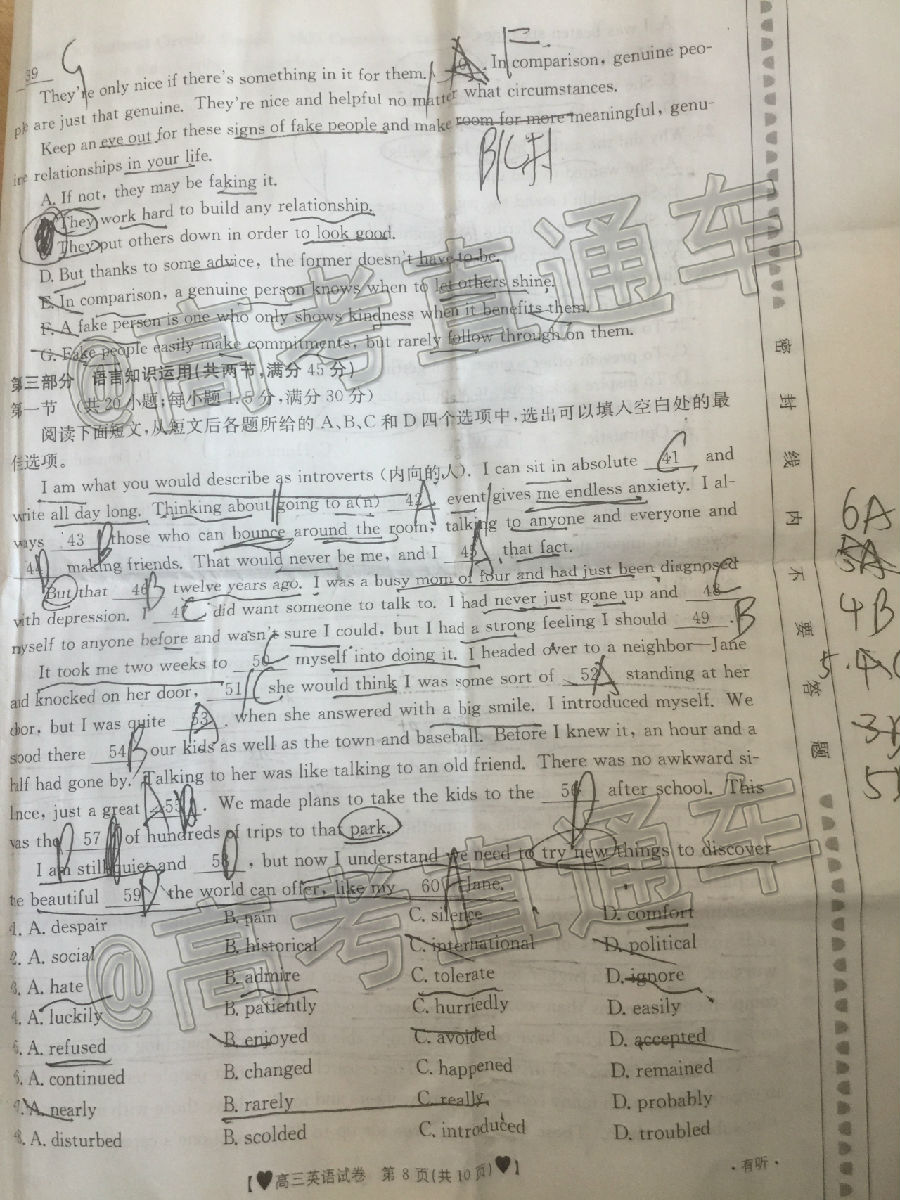 39
They're only nice if there's something in it for them. In comparison, genuine peo-
are just that genuine. They're nice and helpful no matter what circumstances.
Keep an eye out for these signs of fake people and make room for more meaningful, genu-
relationships in your life.
A. If not, they may be faking it.
They work hard to build any relationship.
They put others down in order to look good.
D. But thanks to some advice, the former doesn't have to be.
E. In comparison, a genuine person knows when to let others shine.
F. A fake person is one who only shows kindness when it benefits them.
G. Fake people easily make commitments, but rarely follow through on them.
第三部分 语言知识运用(共两节,满分 45 分)
第一节 (共 20 小题;每小题 1.5 分,满分 30 分)
阅读下面短文,从短文后各题所给的 A、B、C 和 D 四个选项中,选出可以填入空白处的最
佳选项。
I am what you would describe as introverts (内向的人). I can sit in absolute 41 C and
write all day long. Thinking about going to a(n) 42 A event gives me endless anxiety. I al-
ways 43 B those who can bounce around the room, talking to anyone and everyone and
44 B making friends. That would never be me, and I 45 A that fact.
But that 46 B twelve years ago. I was a busy mom of four and had just been diagnosed
with depression. I 47 C did want someone to talk to. I had never just gone up and 48 C
myself to anyone before and wasn't sure I could, but I had a strong feeling I should 49 B.
It took me two weeks to 50 C myself into doing it. I headed over to a neighbor—Jane
and knocked on her door, 51 C she would think I was some sort of 52 A standing at her
door, but I was quite 53 A, when she answered with a big smile. I introduced myself. We
stood there 54 B our kids as well as the town and baseball. Before I knew it, an hour and a
half had gone by. Talking to her was like talking to an old friend. There was no awkward si-
lence, just a great 55. We made plans to take the kids to the 56 after school. This
was the 57 of hundreds of trips to that park.
I am still quiet and 58, but now I understand we need to try new things to discover
the beautiful 59 the world can offer, like my 60 A Jane.
41. A. despair B. pain C. silence D. comfort
42. A. social B. historical C. international D. political
43. A. hate B. admire C. tolerate D. ignore
44. A. luckily B. patiently C. hurriedly D. easily
45. A. refused B. enjoyed C. avoided D. accepted
46. A. continued B. changed C. happened D. remained
47. A. nearly B. rarely C. really D. probably
48. A. disturbed B. scolded C. introduced D. troubled
【♥高三英语试卷 第 8 页(共 10 页)♥】
·有听·
密封线内不要答题
6A
4B
@高考直通车
@高考直通车